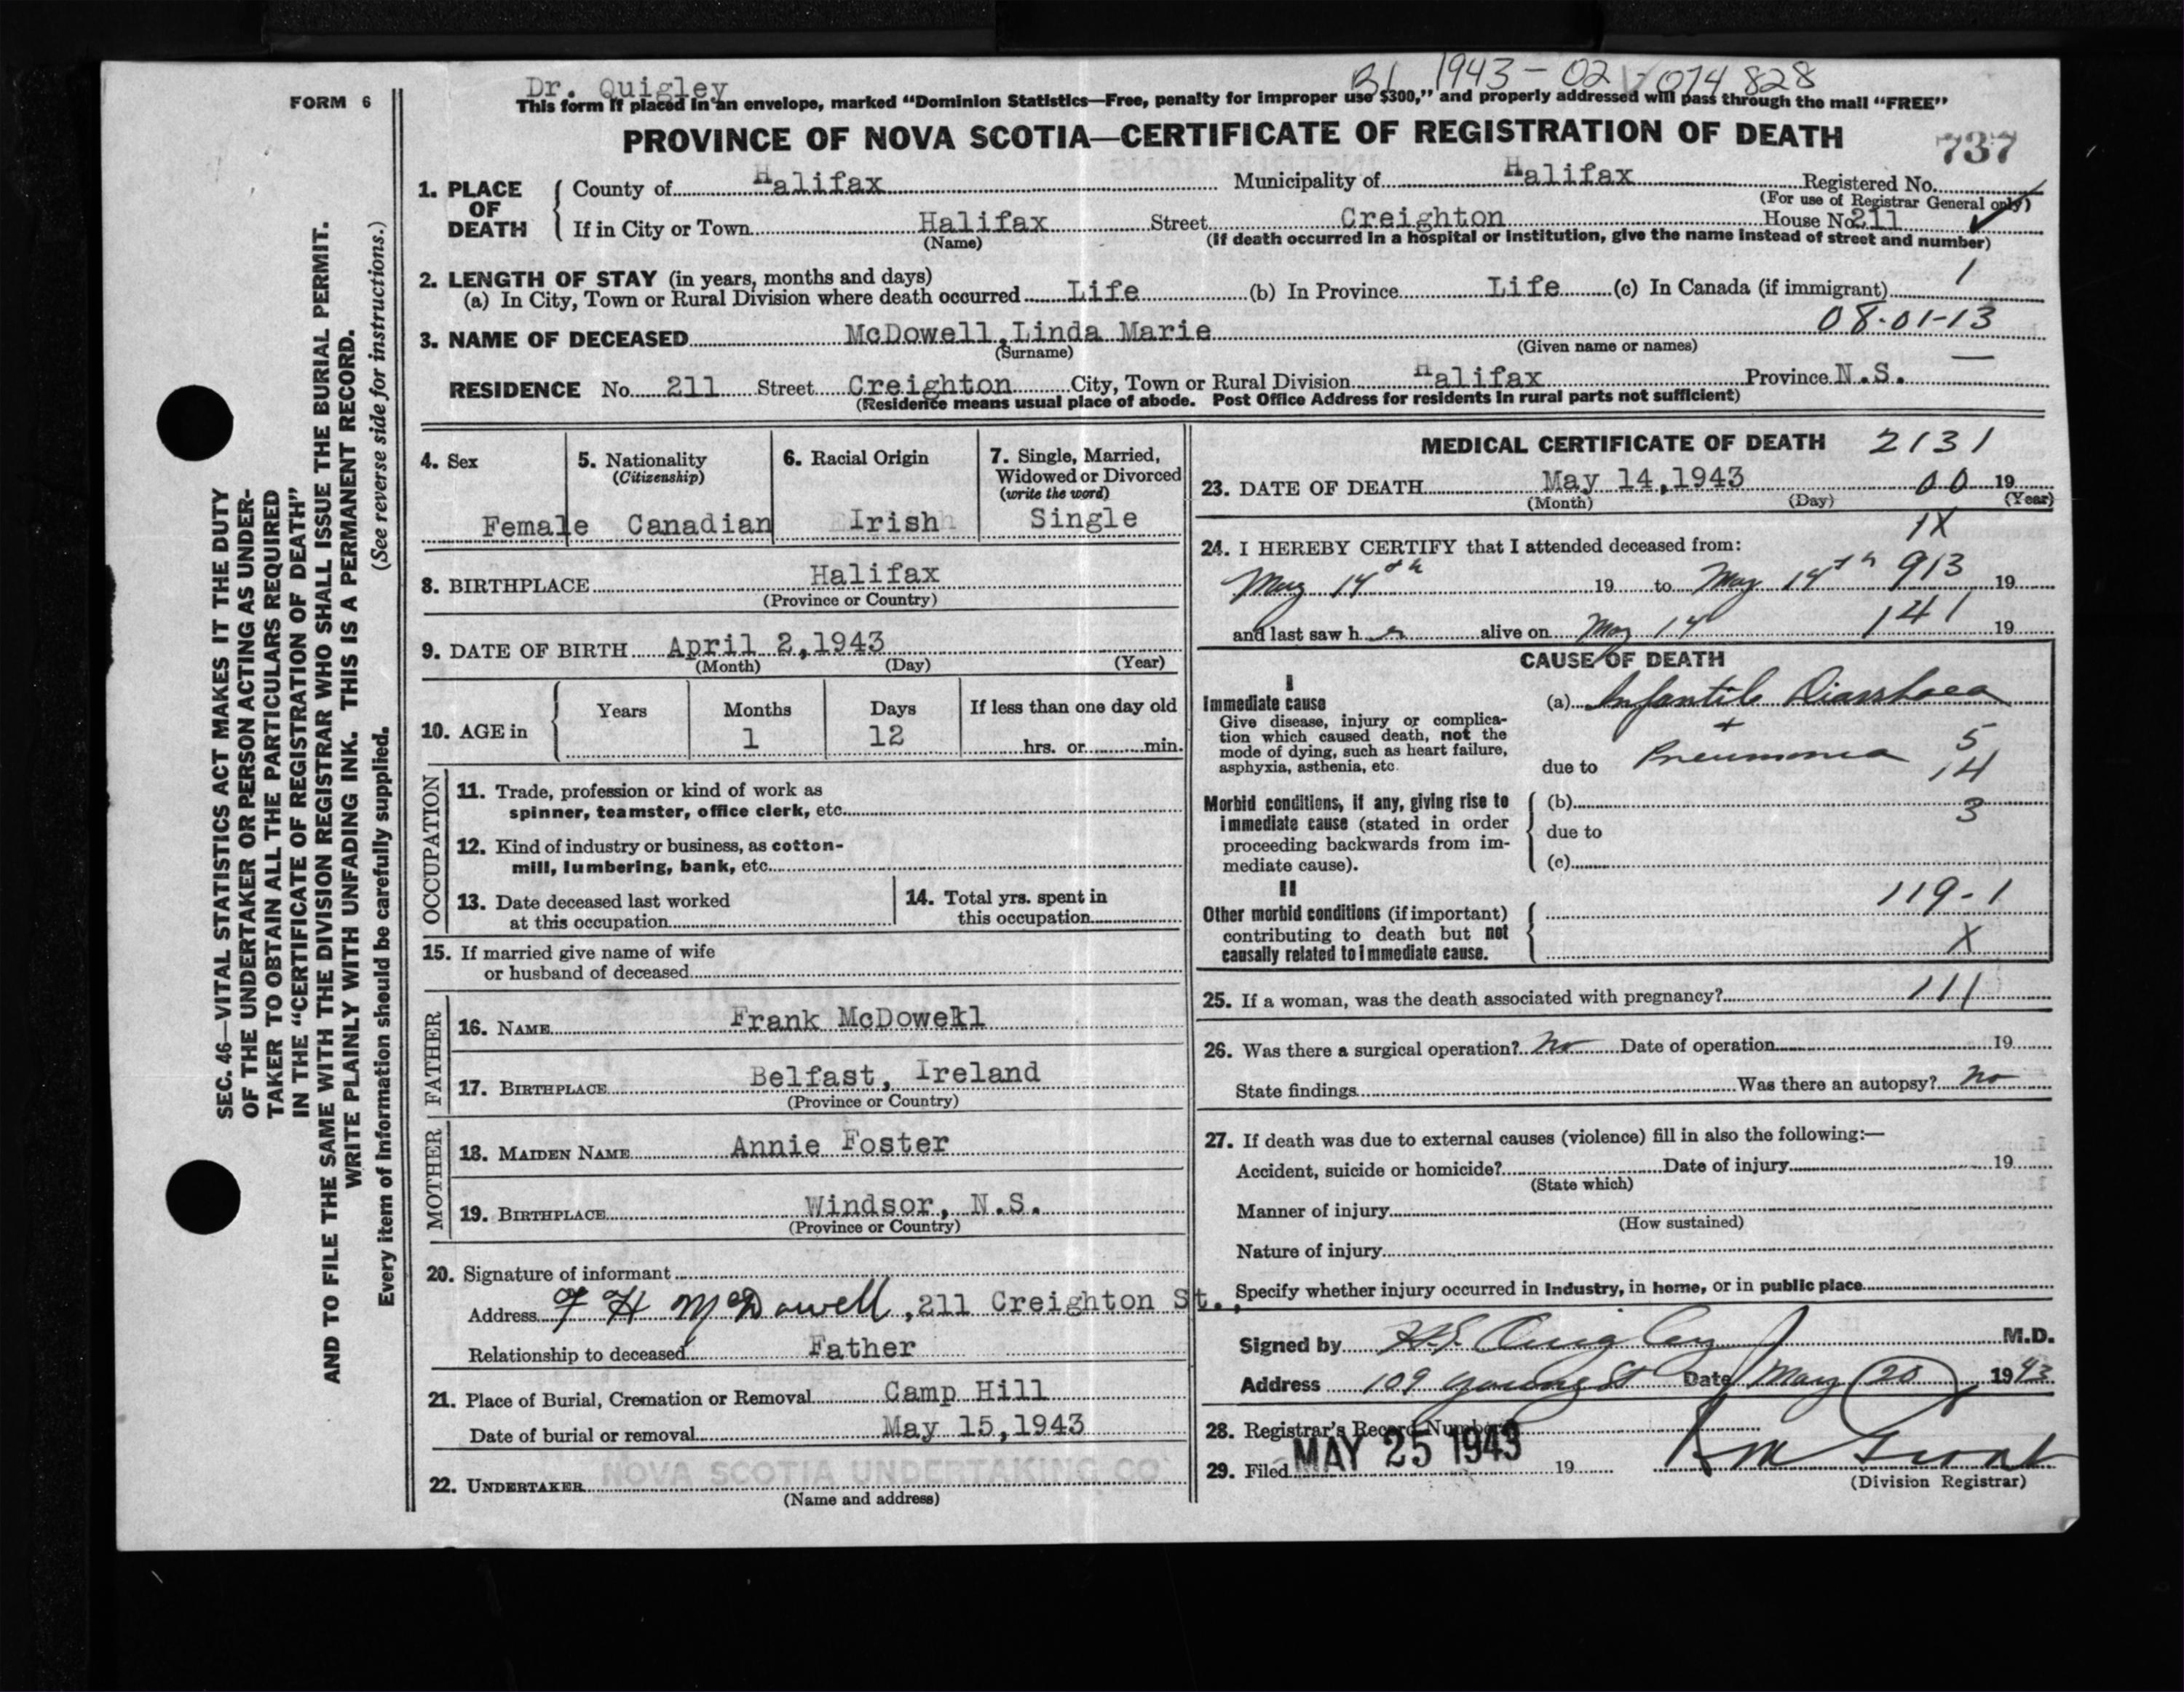 FORM 6
Dr. Quigley
1943-02-074828
This form if placed in an envelope, marked "Dominion Statistics—Free, penalty for improper use $300," and properly addressed will pass through the mail "FREE"
PROVINCE OF NOVA SCOTIA—CERTIFICATE OF REGISTRATION OF DEATH
737
1. PLACE OF DEATH
County of Halifax Municipality of Halifax Registered No.
(For use of Registrar General only)
If in City or Town Halifax Street Creighton House No 211
(Name) (If death occurred in a hospital or institution, give the name instead of street and number)
2. LENGTH OF STAY (in years, months and days)
(a) In City, Town or Rural Division where death occurred Life (b) In Province Life (c) In Canada (if immigrant) 1
08-01-13
3. NAME OF DECEASED McDowell, Linda Marie
(Surname) (Given name or names)
RESIDENCE No. 211 Street Creighton City, Town or Rural Division Halifax Province N.S.
(Residence means usual place of abode. Post Office Address for residents in rural parts not sufficient)
4. Sex
Female
5. Nationality
(Citizenship)
Canadian
6. Racial Origin
Irish
7. Single, Married,
Widowed or Divorced
(write the word)
Single
8. BIRTHPLACE Halifax
(Province or Country)
9. DATE OF BIRTH April 2, 1943
(Month) (Day) (Year)
10. AGE in
Years Months Days If less than one day old
1 12 hrs. or min.
OCCUPATION
11. Trade, profession or kind of work as
spinner, teamster, office clerk, etc.
12. Kind of industry or business, as cotton-
mill, lumbering, bank, etc.
13. Date deceased last worked
at this occupation
14. Total yrs. spent in
this occupation
15. If married give name of wife
or husband of deceased
FATHER
16. NAME Frank McDowell
17. BIRTHPLACE Belfast, Ireland
(Province or Country)
MOTHER
18. MAIDEN NAME Annie Foster
19. BIRTHPLACE Windsor, N.S.
(Province or Country)
20. Signature of informant
Address F H McDowell, 211 Creighton St.,
Relationship to deceased Father
21. Place of Burial, Cremation or Removal Camp Hill
Date of burial or removal May 15, 1943
22. UNDERTAKER NOVA SCOTIA UNDERTAKING CO
(Name and address)
MEDICAL CERTIFICATE OF DEATH 2131
23. DATE OF DEATH May 14, 1943 00 19
(Month) (Day) (Year)
1X
24. I HEREBY CERTIFY that I attended deceased from:
May 14th 19 to May 14th 913 19
and last saw her alive on May 14 141 19
CAUSE OF DEATH
I
Immediate cause
Give disease, injury or complica-
tion which caused death, not the
mode of dying, such as heart failure,
asphyxia, asthenia, etc.
(a) Infantile Diarrhoea
+
due to Pneumonia 5
14
Morbid conditions, if any, giving rise to
immediate cause (stated in order
proceeding backwards from im-
mediate cause).
(b) 3
due to
(c)
II
Other morbid conditions (if important)
contributing to death but not
causally related to immediate cause.
119-1
X
25. If a woman, was the death associated with pregnancy? 111
26. Was there a surgical operation? No Date of operation 19
State findings Was there an autopsy? No
27. If death was due to external causes (violence) fill in also the following:—
Accident, suicide or homicide? Date of injury 19
(State which)
Manner of injury
(How sustained)
Nature of injury
Specify whether injury occurred in industry, in home, or in public place
Signed by Quigley M.D.
Address 109 Young St Date May 20 1943
28. Registrar's Record Number
29. Filed MAY 25 1943 19
(Division Registrar)
SEC. 46—VITAL STATISTICS ACT MAKES IT THE DUTY
OF THE UNDERTAKER OR PERSON ACTING AS UNDER-
TAKER TO OBTAIN ALL THE PARTICULARS REQUIRED
IN THE "CERTIFICATE OF REGISTRATION OF DEATH"
AND TO FILE THE SAME WITH THE DIVISION REGISTRAR WHO SHALL ISSUE THE BURIAL PERMIT.
WRITE PLAINLY WITH UNFADING INK. THIS IS A PERMANENT RECORD.
Every item of information should be carefully supplied. (See reverse side for instructions.)